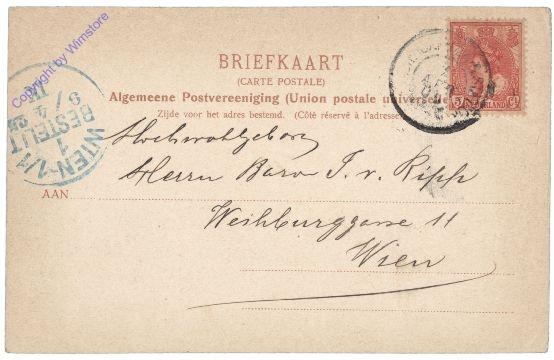 Copyright by Wimstore
BRIEFKAART
(CARTE POSTALE)
Algemeene Postvereeniging (Union postale universelle)
Zijde voor het adres bestemd. (Côté réservé à l'adresse)
WIEN 1/1
BESTELLT
Hochwohlgeboren
Herrn Baron T. v. Ripp
AAN
Weihburggasse 11
Wien